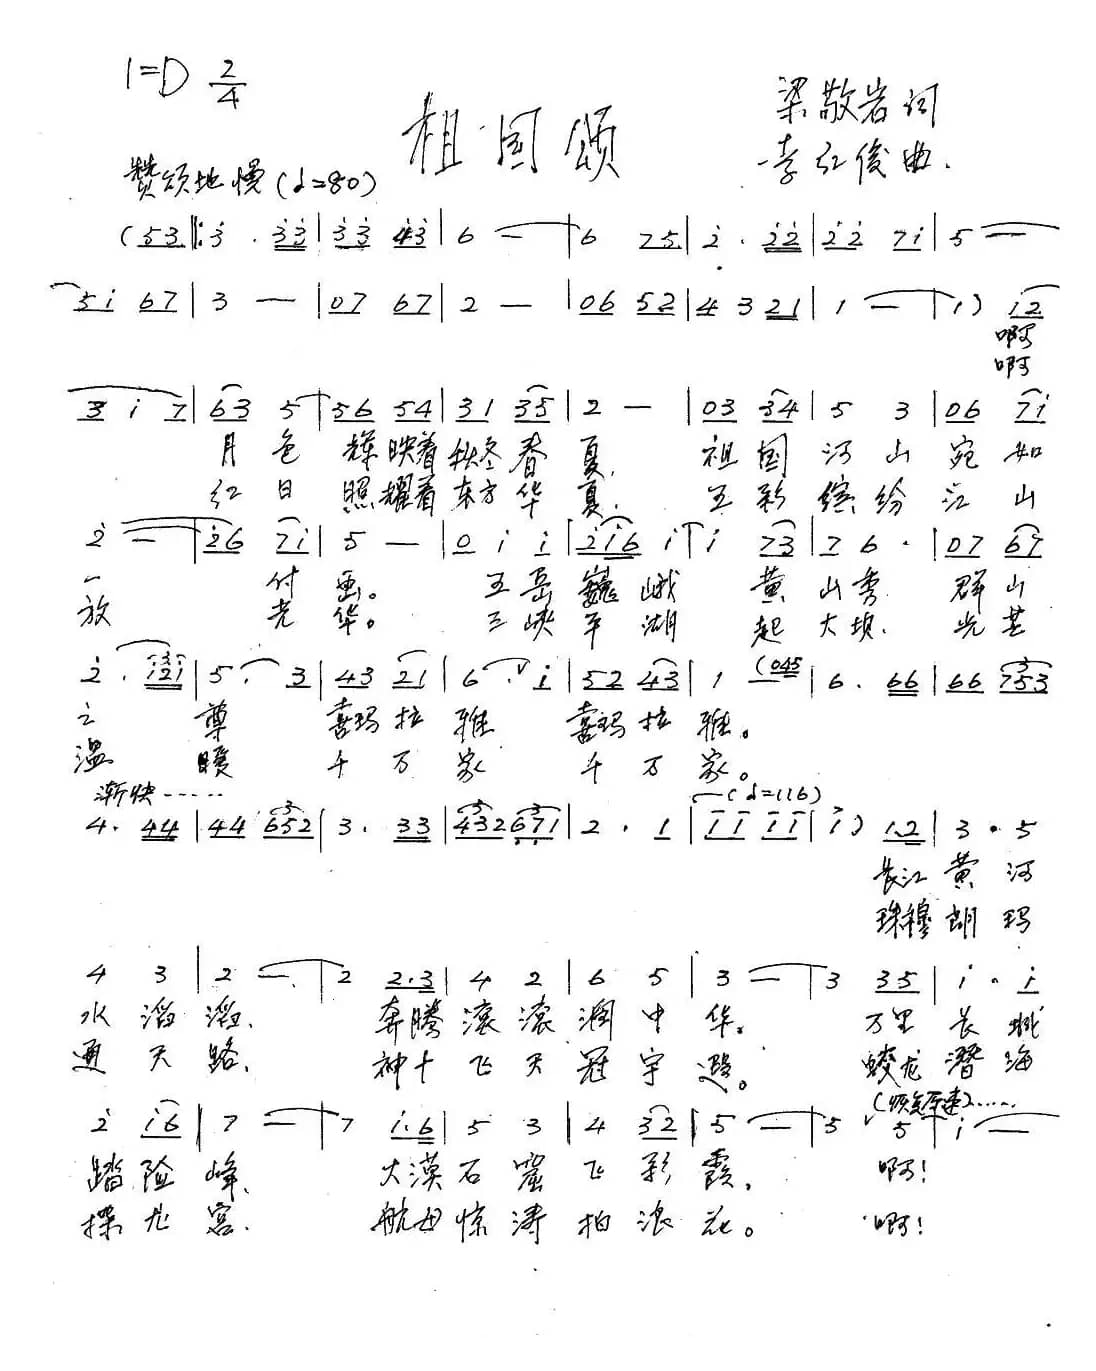 1=D 2/4
祖国颂
梁敬岩词
李红俊曲.
赞颂地慢(♩=80)
(53‖: 3 . 33 | 33 43 | 6 — | 6 75 | 2 . 22 | 22 71 | 5 —
51 67 | 3 — | 07 67 | 2 — | 06 52 | 4 3 21 | 1 — | 1) 12
啊
啊
3 1 7 | 63 5 | 56 54 | 31 35 | 2 — | 03 34 | 5 3 | 06 71
月色辉映着秋冬春夏, 祖国河山宛如
红日照耀着东方华夏, 五彩缤纷江山
2 — | 26 71 | 5 — | 0 1 1 | 216 1 | 1 73 | 7 6 . | 07 67
一付画。 五岳巍峨黄山秀 群山
放光华。 三峡平湖起大坝. 光芒
2 . 121 | 5 . 3 | 43 21 | 6 . 1 | 52 43 | 1 (045 | 6 . 66 | 66 753
之尊 喜玛拉雅 喜玛拉雅。
温暖 千万家 千万家。
渐快……
4 . 44 | 44 652 | 3 . 33 | 432 671 | 2 . 1 | 11 11 | 1) 1.2 | 3 . 5
(♩=116)
长江黄河
珠穆朗玛
4 3 | 2 — | 2 2.3 | 4 2 | 6 5 | 3 — | 3 35 | 1 . 1
水滔滔, 奔腾滚滚润中华。 万里长城
通天路, 神十飞天冠宇遐。 蛟龙潜海
(恢复原速)……
2 16 | 7 — | 7 1.6 | 5 3 | 4 32 | 5 — | 5 5 | 1 —
踏险峰, 大漠石窟飞彩霞, 啊!
探龙宫, 航母惊涛拍浪花。 啊!